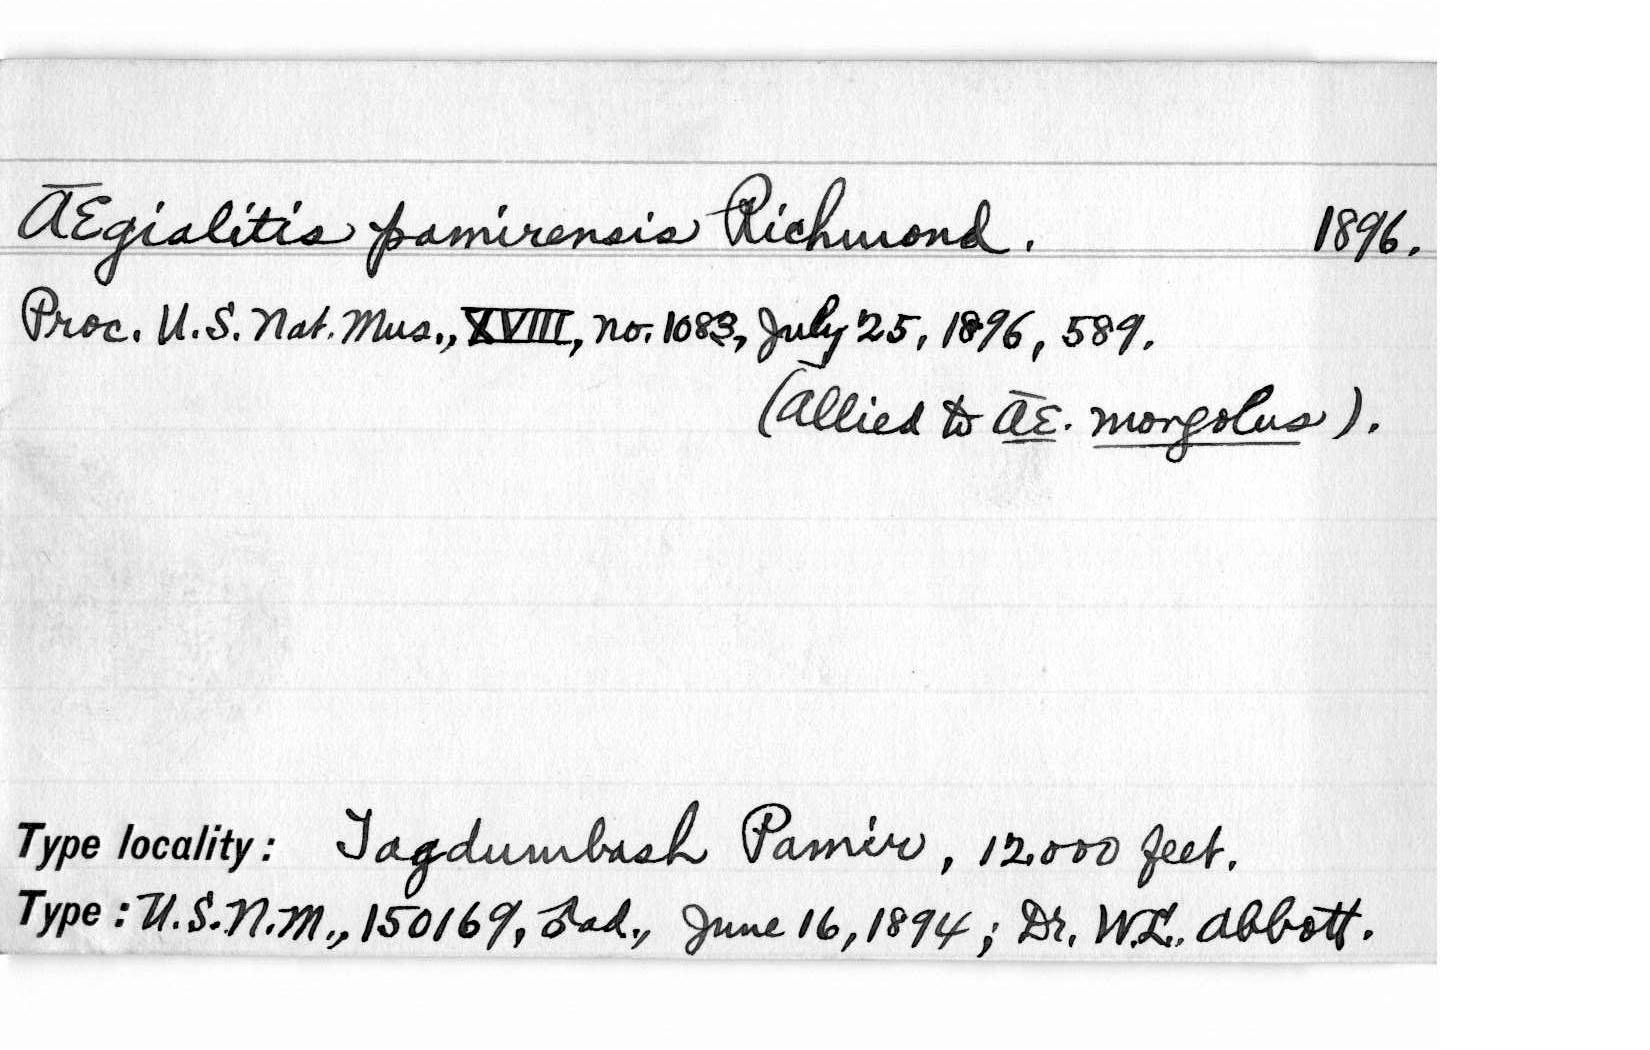 Ægialitis pamirensis Richmond. 1896.
Proc. U.S. Nat. Mus., XVIII, no. 1083, July 25, 1896, 589.
(Allied to Æ. mongolus).
Type locality: Tagdumbash Pamir, 12,000 feet.
Type: U.S.N.M., 150169, ♂ ad., June 16, 1894; Dr. W.L. Abbott.